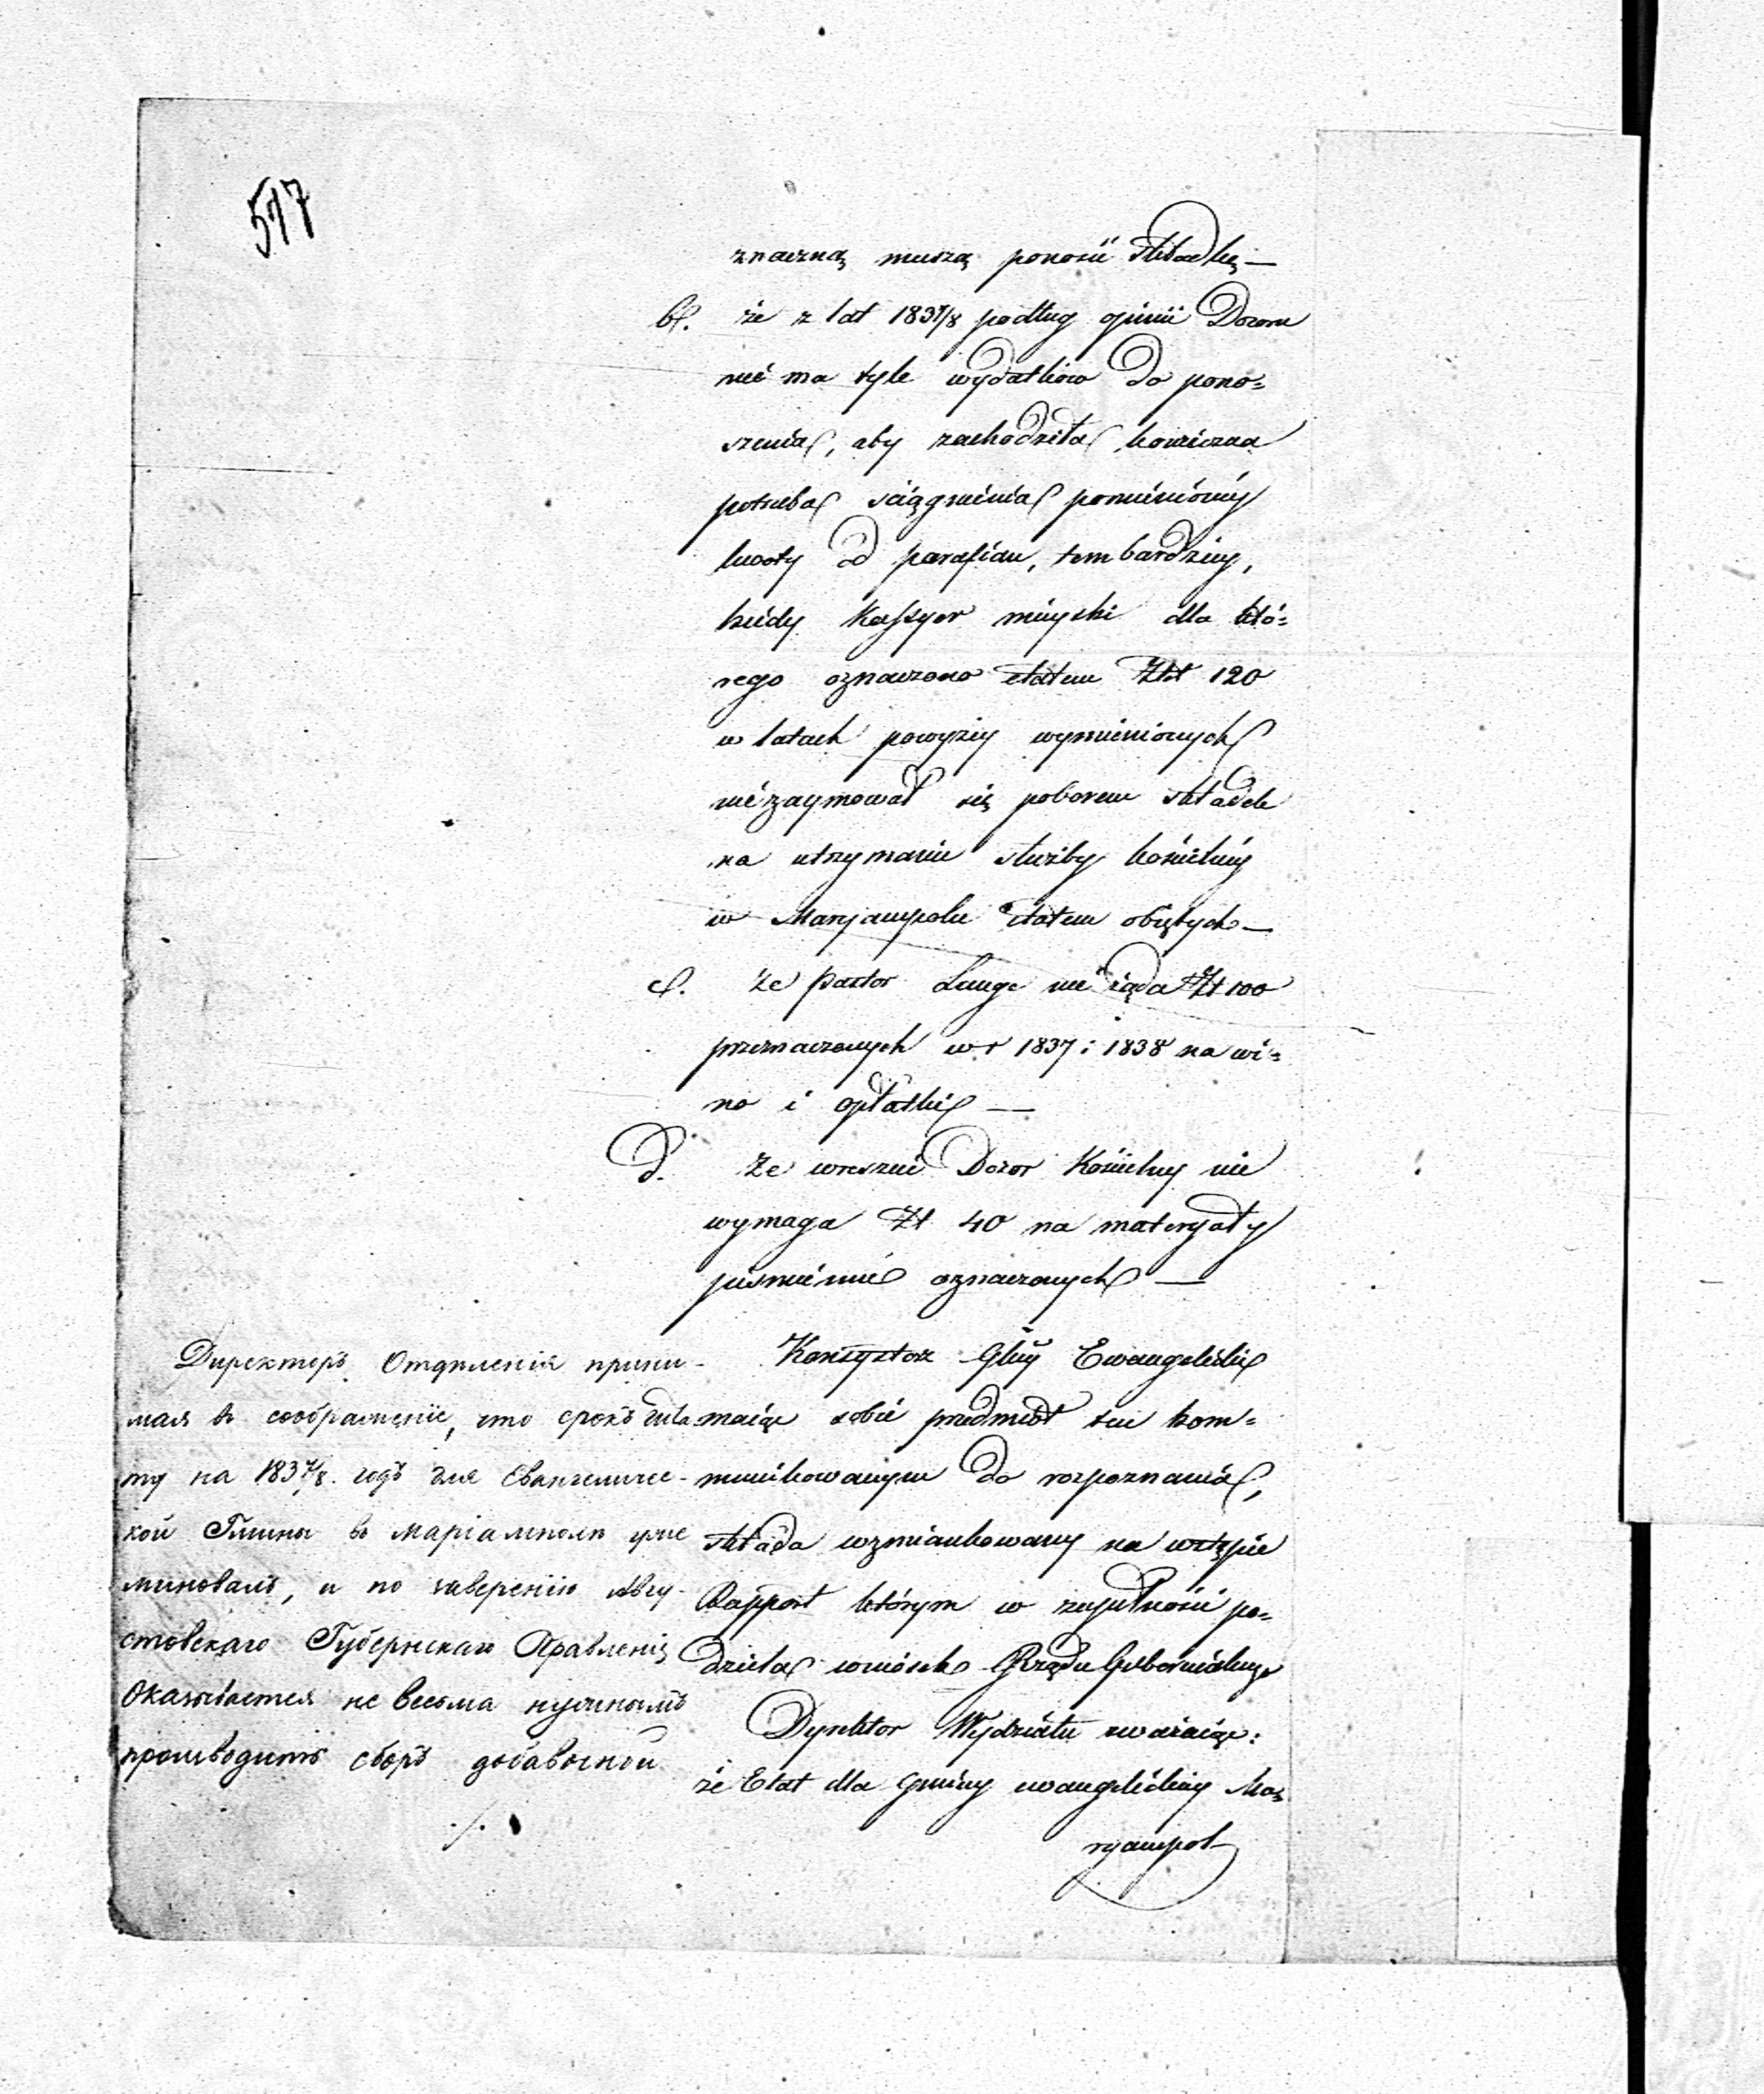 517
znaczną muszą ponosić składkę —
b. że z lat 1837/8 podług opinii Dozoru
nié ma tyle wydatków do pono=
szenia, aby zachodziła konieczna
potrzeba sciągnienia pomienionéy
kwoty od parafian, tem bardziey,
kiedy Kassyer mieyski dla któ=
rego oznaczono etatem Złt 120
w latach powyżey wymienionych
niézaymował się poborem składek
na utrzymanie służby kościelnéy
w Maryampolu etatem obiętych —
c. Że Pastor Lange nie żąda Zł 100
przeznaczonych w r 1837 i 1838 na wi=
no i opłatki —
d. Że wreszcie Dozor Kościelny nie
wymaga Zł 40 na materyały
piśmienne oznaczonych —
Konsystorz Głny Ewangelicki
maiąc sobie przedmiot ten kom=
munikowanym do rozpoznania,
składa wzmiankowany na wstępie
Rapport którym w zupełności po=
dziela wniosek Rządu Gubernialnego
Dyrektor Wydziału zważaiąc:
że Etat dla Gminy ewangelickiey Ma=
ryampol
Директоръ Отдѣленія прини-
мая въ соображеніе, что срокъ шта
ту на 1837/8. годъ для Евангеличес-
кой Гмины въ Маріамполѣ уже
миновалъ, и по заверенію Авгу-
стовскаго Губернскаго Правленія
Оказывается не весьма нужнымъ
производить сборъ добавочной
./.